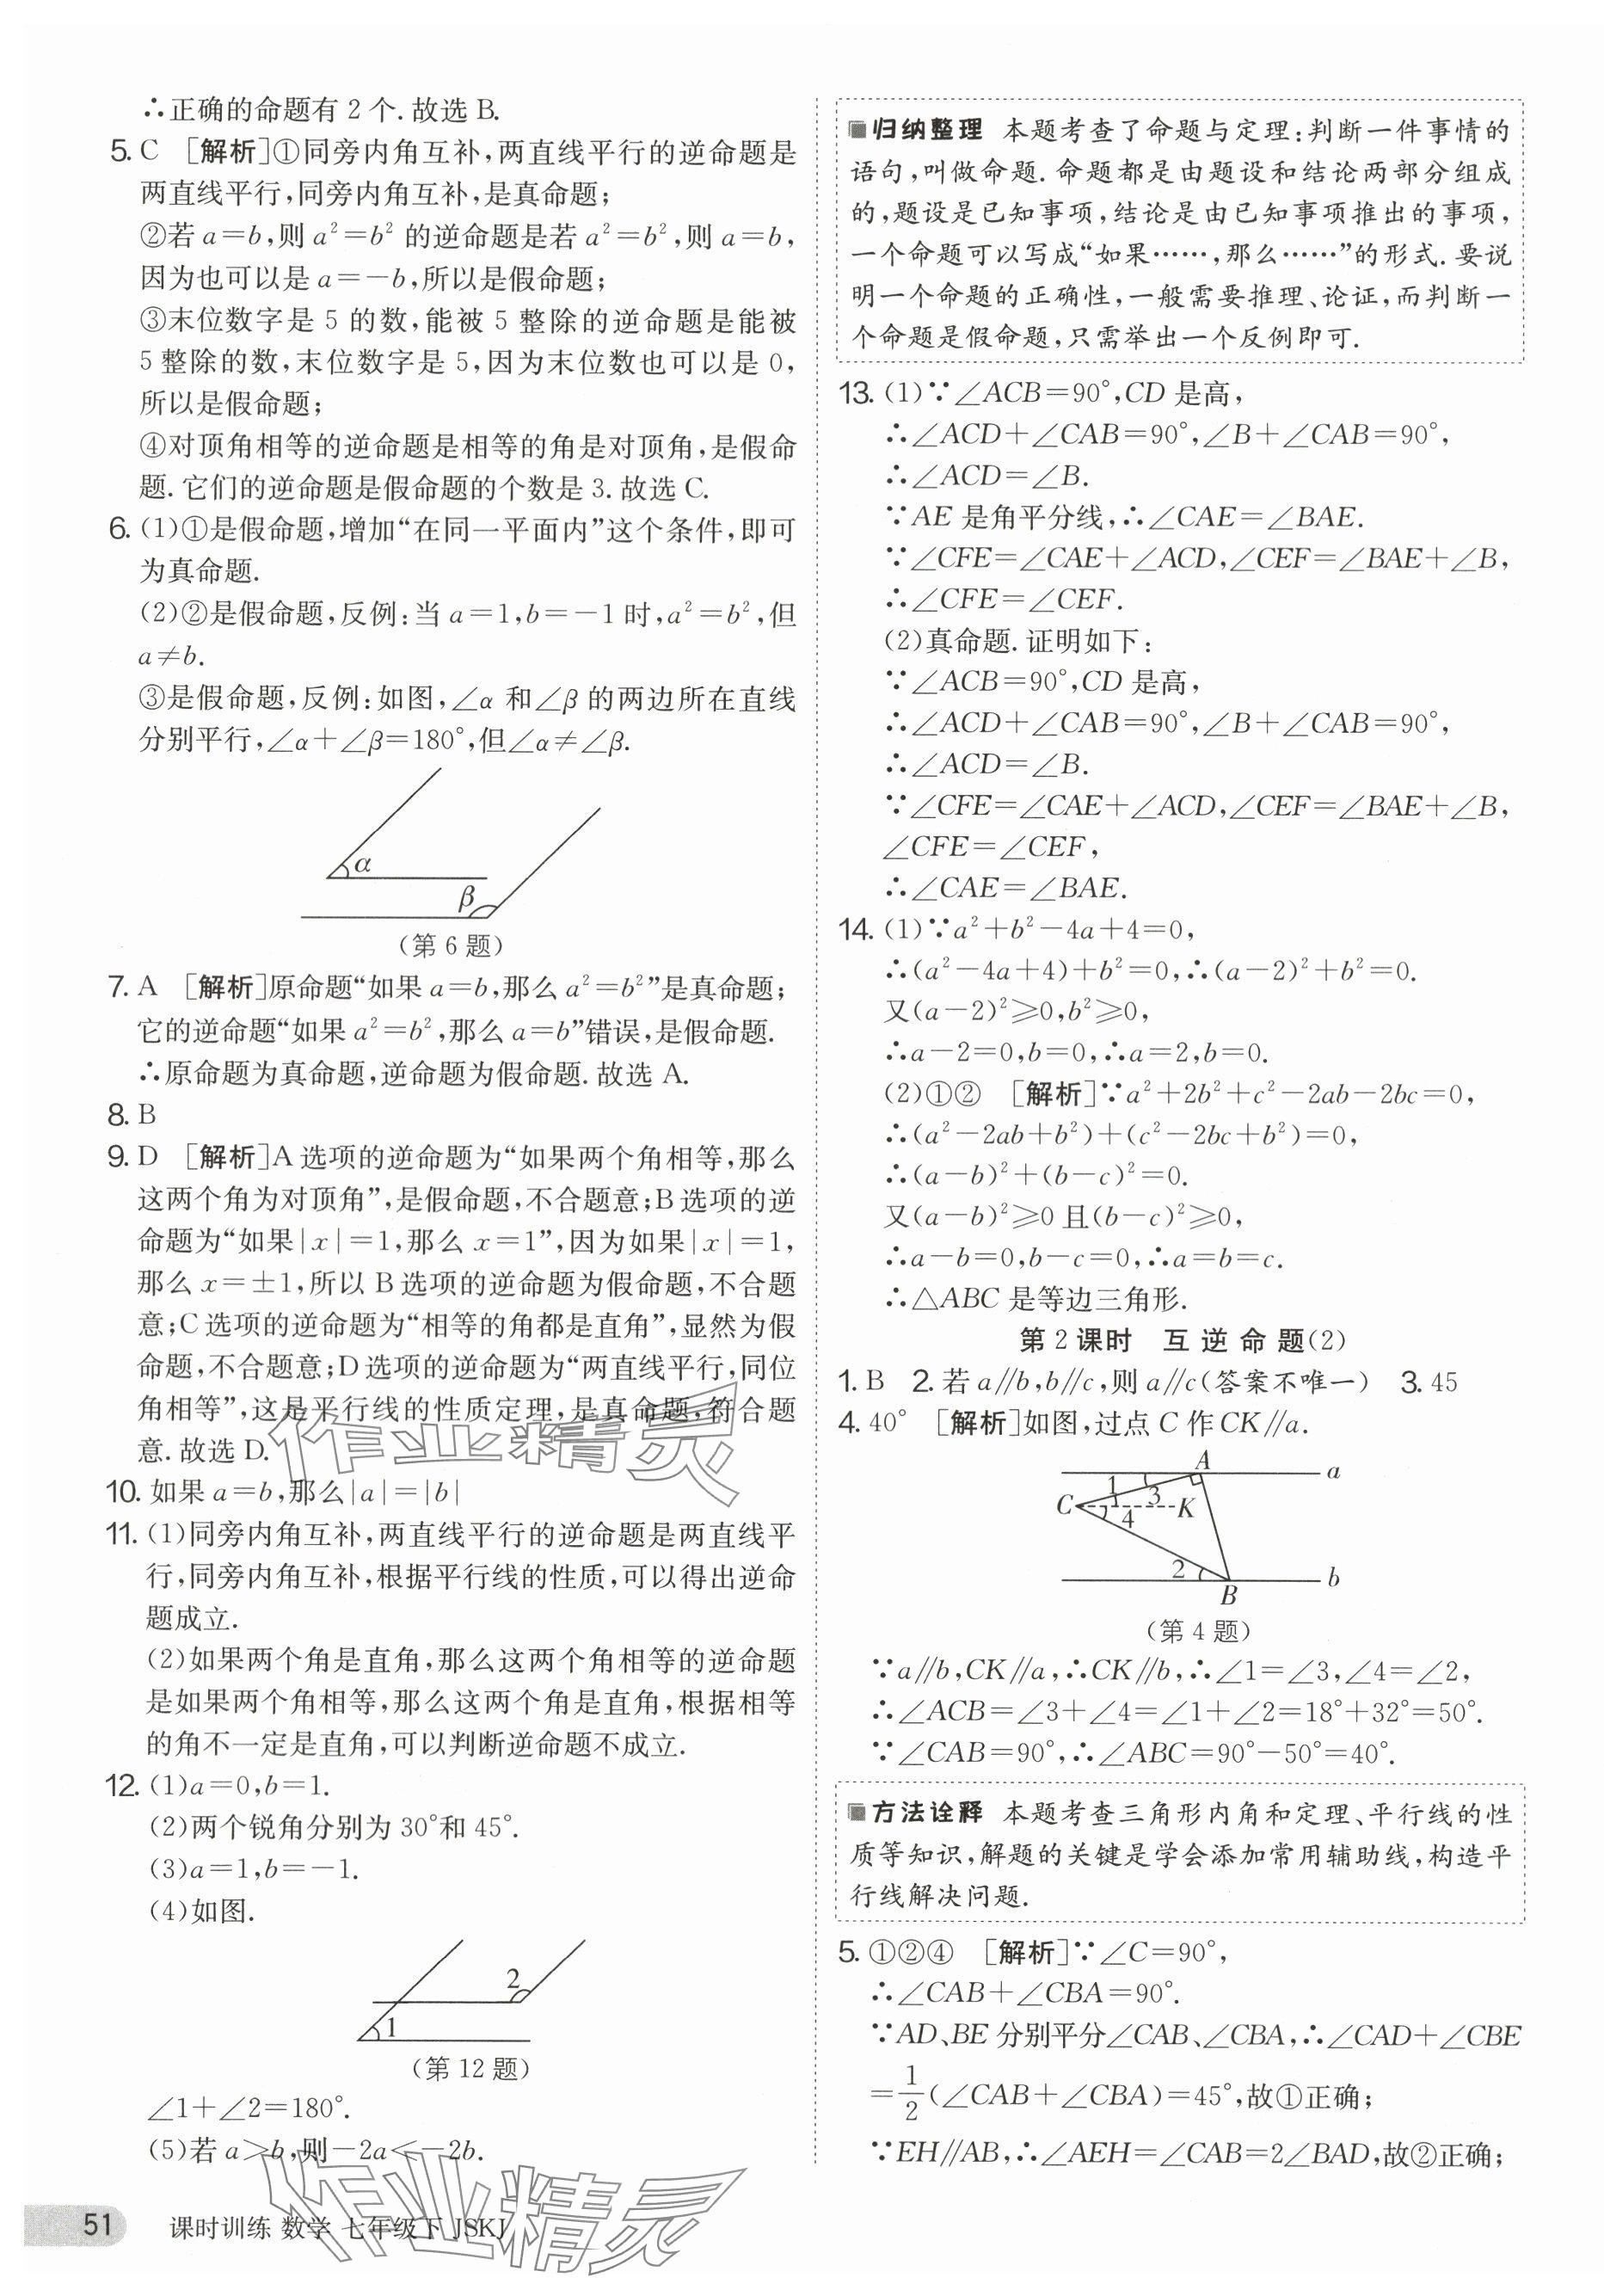 ∴正确的命题有 2 个. 故选 B.
5. C [解析]①同旁内角互补,两直线平行的逆命题是
两直线平行,同旁内角互补,是真命题;
②若 a=b,则 a²=b² 的逆命题是若 a²=b²,则 a=b,
因为也可以是 a=-b,所以是假命题;
③末位数字是 5 的数,能被 5 整除的逆命题是能被
5 整除的数,末位数字是 5,因为末位数也可以是 0,
所以是假命题;
④对顶角相等的逆命题是相等的角是对顶角,是假命
题. 它们的逆命题是假命题的个数是 3. 故选 C.
6. (1)①是假命题,增加“在同一平面内”这个条件,即可
为真命题.
(2)②是假命题,反例:当 a=1,b=-1 时,a²=b²,但
a≠b.
③是假命题,反例:如图,∠α 和∠β 的两边所在直线
分别平行,∠α+∠β=180°,但∠α≠∠β.
α
β
(第 6 题)
7. A [解析]原命题“如果 a=b,那么 a²=b²”是真命题;
它的逆命题“如果 a²=b²,那么 a=b”错误,是假命题.
∴原命题为真命题,逆命题为假命题. 故选 A.
8. B
9. D [解析]A 选项的逆命题为“如果两个角相等,那么
这两个角为对顶角”,是假命题,不合题意;B 选项的逆
命题为“如果|x|=1,那么 x=1”,因为如果|x|=1,
那么 x=±1,所以 B 选项的逆命题为假命题,不合题
意;C 选项的逆命题为“相等的角都是直角”,显然为假
命题,不合题意;D 选项的逆命题为“两直线平行,同位
角相等”,这是平行线的性质定理,是真命题,符合题
意. 故选 D.
10. 如果 a=b,那么|a|=|b|
11. (1)同旁内角互补,两直线平行的逆命题是两直线平
行,同旁内角互补,根据平行线的性质,可以得出逆命
题成立.
(2)如果两个角是直角,那么这两个角相等的逆命题
是如果两个角相等,那么这两个角是直角,根据相等
的角不一定是直角,可以判断逆命题不成立.
12. (1)a=0,b=1.
(2)两个锐角分别为 30°和 45°.
(3)a=1,b=-1.
(4)如图.
2
1
(第 12 题)
∠1+∠2=180°.
(5)若 a>b,则-2a<-2b.
作业精灵
作业精灵
51 课时训练 数学 七年级下 JSKJ
归纳整理 本题考查了命题与定理:判断一件事情的
语句,叫做命题. 命题都是由题设和结论两部分组成
的,题设是已知事项,结论是由已知事项推出的事项,
一个命题可以写成“如果……,那么……”的形式. 要说
明一个命题的正确性,一般需要推理、论证,而判断一
个命题是假命题,只需举出一个反例即可.
13. (1)∵∠ACB=90°,CD 是高,
∴∠ACD+∠CAB=90°,∠B+∠CAB=90°,
∴∠ACD=∠B.
∵AE 是角平分线,∴∠CAE=∠BAE.
∵∠CFE=∠CAE+∠ACD,∠CEF=∠BAE+∠B,
∴∠CFE=∠CEF.
(2)真命题. 证明如下:
∵∠ACB=90°,CD 是高,
∴∠ACD+∠CAB=90°,∠B+∠CAB=90°,
∴∠ACD=∠B.
∵∠CFE=∠CAE+∠ACD,∠CEF=∠BAE+∠B,
∠CFE=∠CEF,
∴∠CAE=∠BAE.
14. (1)∵a²+b²-4a+4=0,
∴(a²-4a+4)+b²=0,∴(a-2)²+b²=0.
又(a-2)²≥0,b²≥0,
∴a-2=0,b=0,∴a=2,b=0.
(2)①② [解析]∵a²+2b²+c²-2ab-2bc=0,
∴(a²-2ab+b²)+(c²-2bc+b²)=0,
∴(a-b)²+(b-c)²=0.
又(a-b)²≥0 且(b-c)²≥0,
∴a-b=0,b-c=0,∴a=b=c.
∴△ABC 是等边三角形.
第 2 课时 互逆命题(2)
1. B 2. 若 a∥b,b∥c,则 a∥c(答案不唯一) 3. 45
4. 40° [解析]如图,过点 C 作 CK∥a.
A
a
1
3
C
K
4
2
b
B
(第 4 题)
∵a∥b,CK∥a,∴CK∥b,∴∠1=∠3,∠4=∠2,
∴∠ACB=∠3+∠4=∠1+∠2=18°+32°=50°.
∵∠CAB=90°,∴∠ABC=90°-50°=40°.
方法诠释 本题考查三角形内角和定理、平行线的性
质等知识,解题的关键是学会添加常用辅助线,构造平
行线解决问题.
5. ①②④ [解析]∵∠C=90°,
∴∠CAB+∠CBA=90°.
∵AD、BE 分别平分∠CAB、∠CBA,∴∠CAD+∠CBE
=1/2(∠CAB+∠CBA)=45°,故①正确;
∵EH∥AB,∴∠AEH=∠CAB=2∠BAD,故②正确;